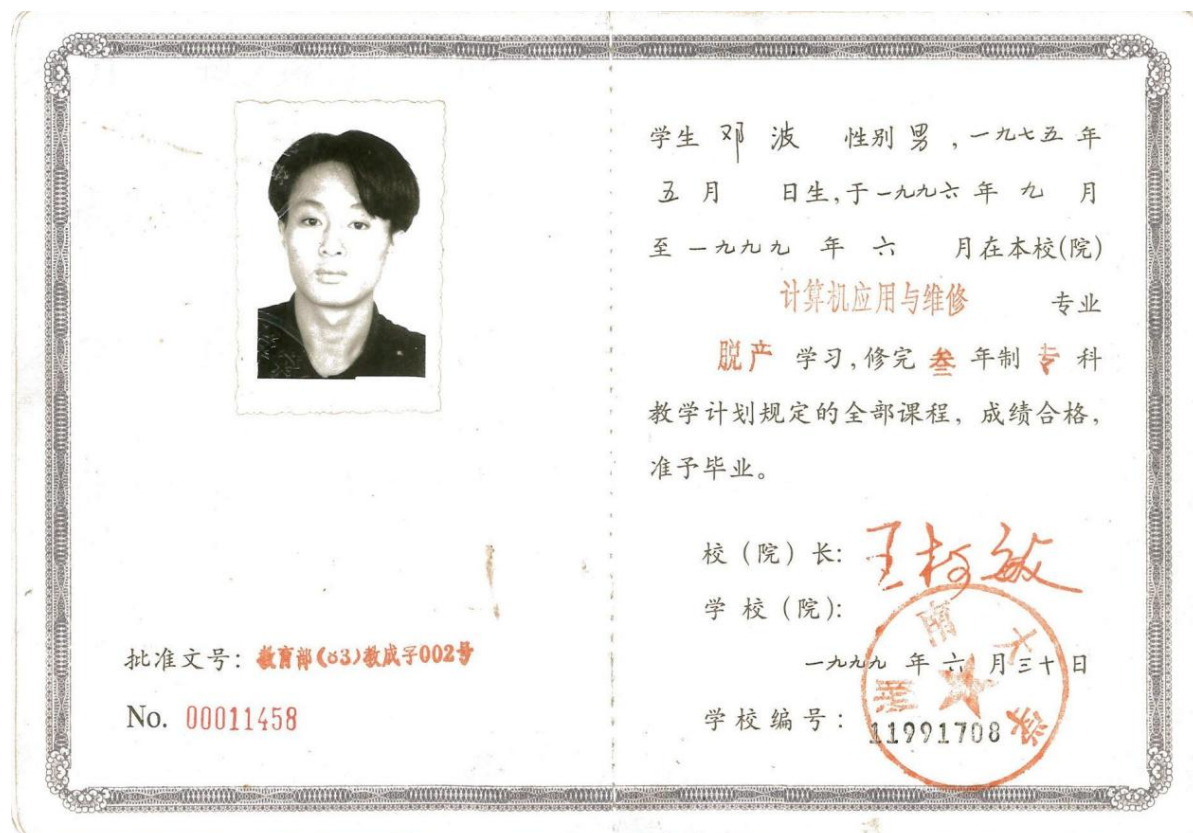 批准文号：教育部(83)教成字002号
No. 00011458
学生 邓 波 性别 男，一九七五 年
五 月 日生，于一九九六 年 九 月
至 一九九九 年 六 月在本校(院)
计算机应用与维修 专业
脱产 学习，修完 叁 年制 专 科
教学计划规定的全部课程，成绩合格，
准予毕业。
校（院）长：王柯敏
学 校（院）：
湖南大学
一九九九 年 六 月三十日
学校编号：11991708